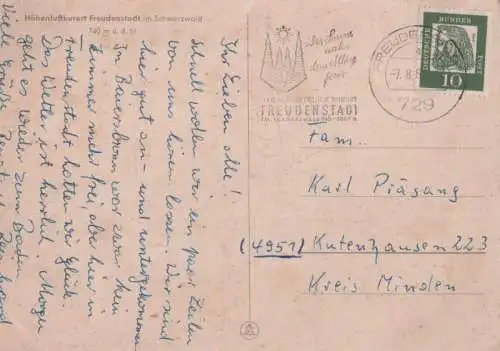 Höhenluftkurort Freudenstadt im Schwarzwald
740 m ü. d. M.
Ihr Lieben alle!
Schnell wollen wir ein paar Zeilen
von uns hören lassen. Wir sind
hier gut an- und untergekommen
In Baiersbronn war zwar kein
Zimmer mehr frei aber hier in
Freudenstadt hatten wir Glück.
Das Wetter ist herrlich. Morgen
geht es wieder zum Baden
viele Grüße
Der Sonne
nahe
dem Alltag
fern
FREUDENSTADT
FREUDEN
-7.8.6
729
DEUTSCHE
BUNDES
POST
10
Fam.
Karl Piägang
(4951) Kutenhausen 223
Kreis Minden